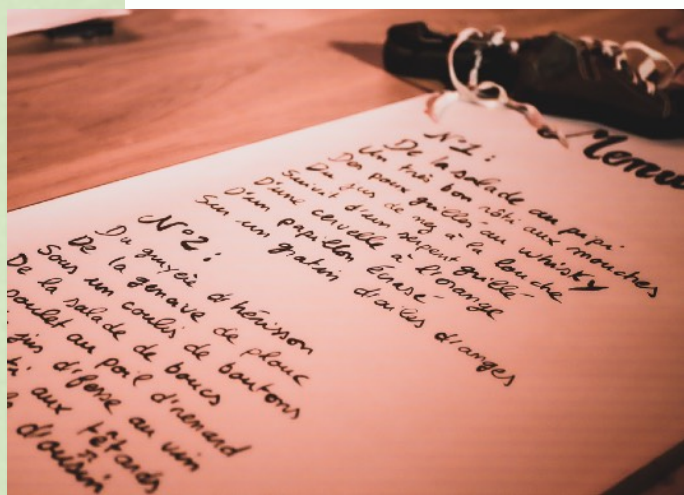 Menu
N°1 :
De la salade au pipi
Un très bon rôti aux mouches
Des poux grillés au whisky
Du jus de nez à la louche
Suivit d'un serpent grillé
D'une cervelle à l'orange
D'un papillon écrasé
Sur un gratin d'ailes d'anges
N°2 :
Du gruyère d'hérisson
De la genave de plouc
Sous un coulis de boutons
De la salade de boucs
poulet au poil d'renard
jus d'fesse au vin
aux têtards
d'oursin